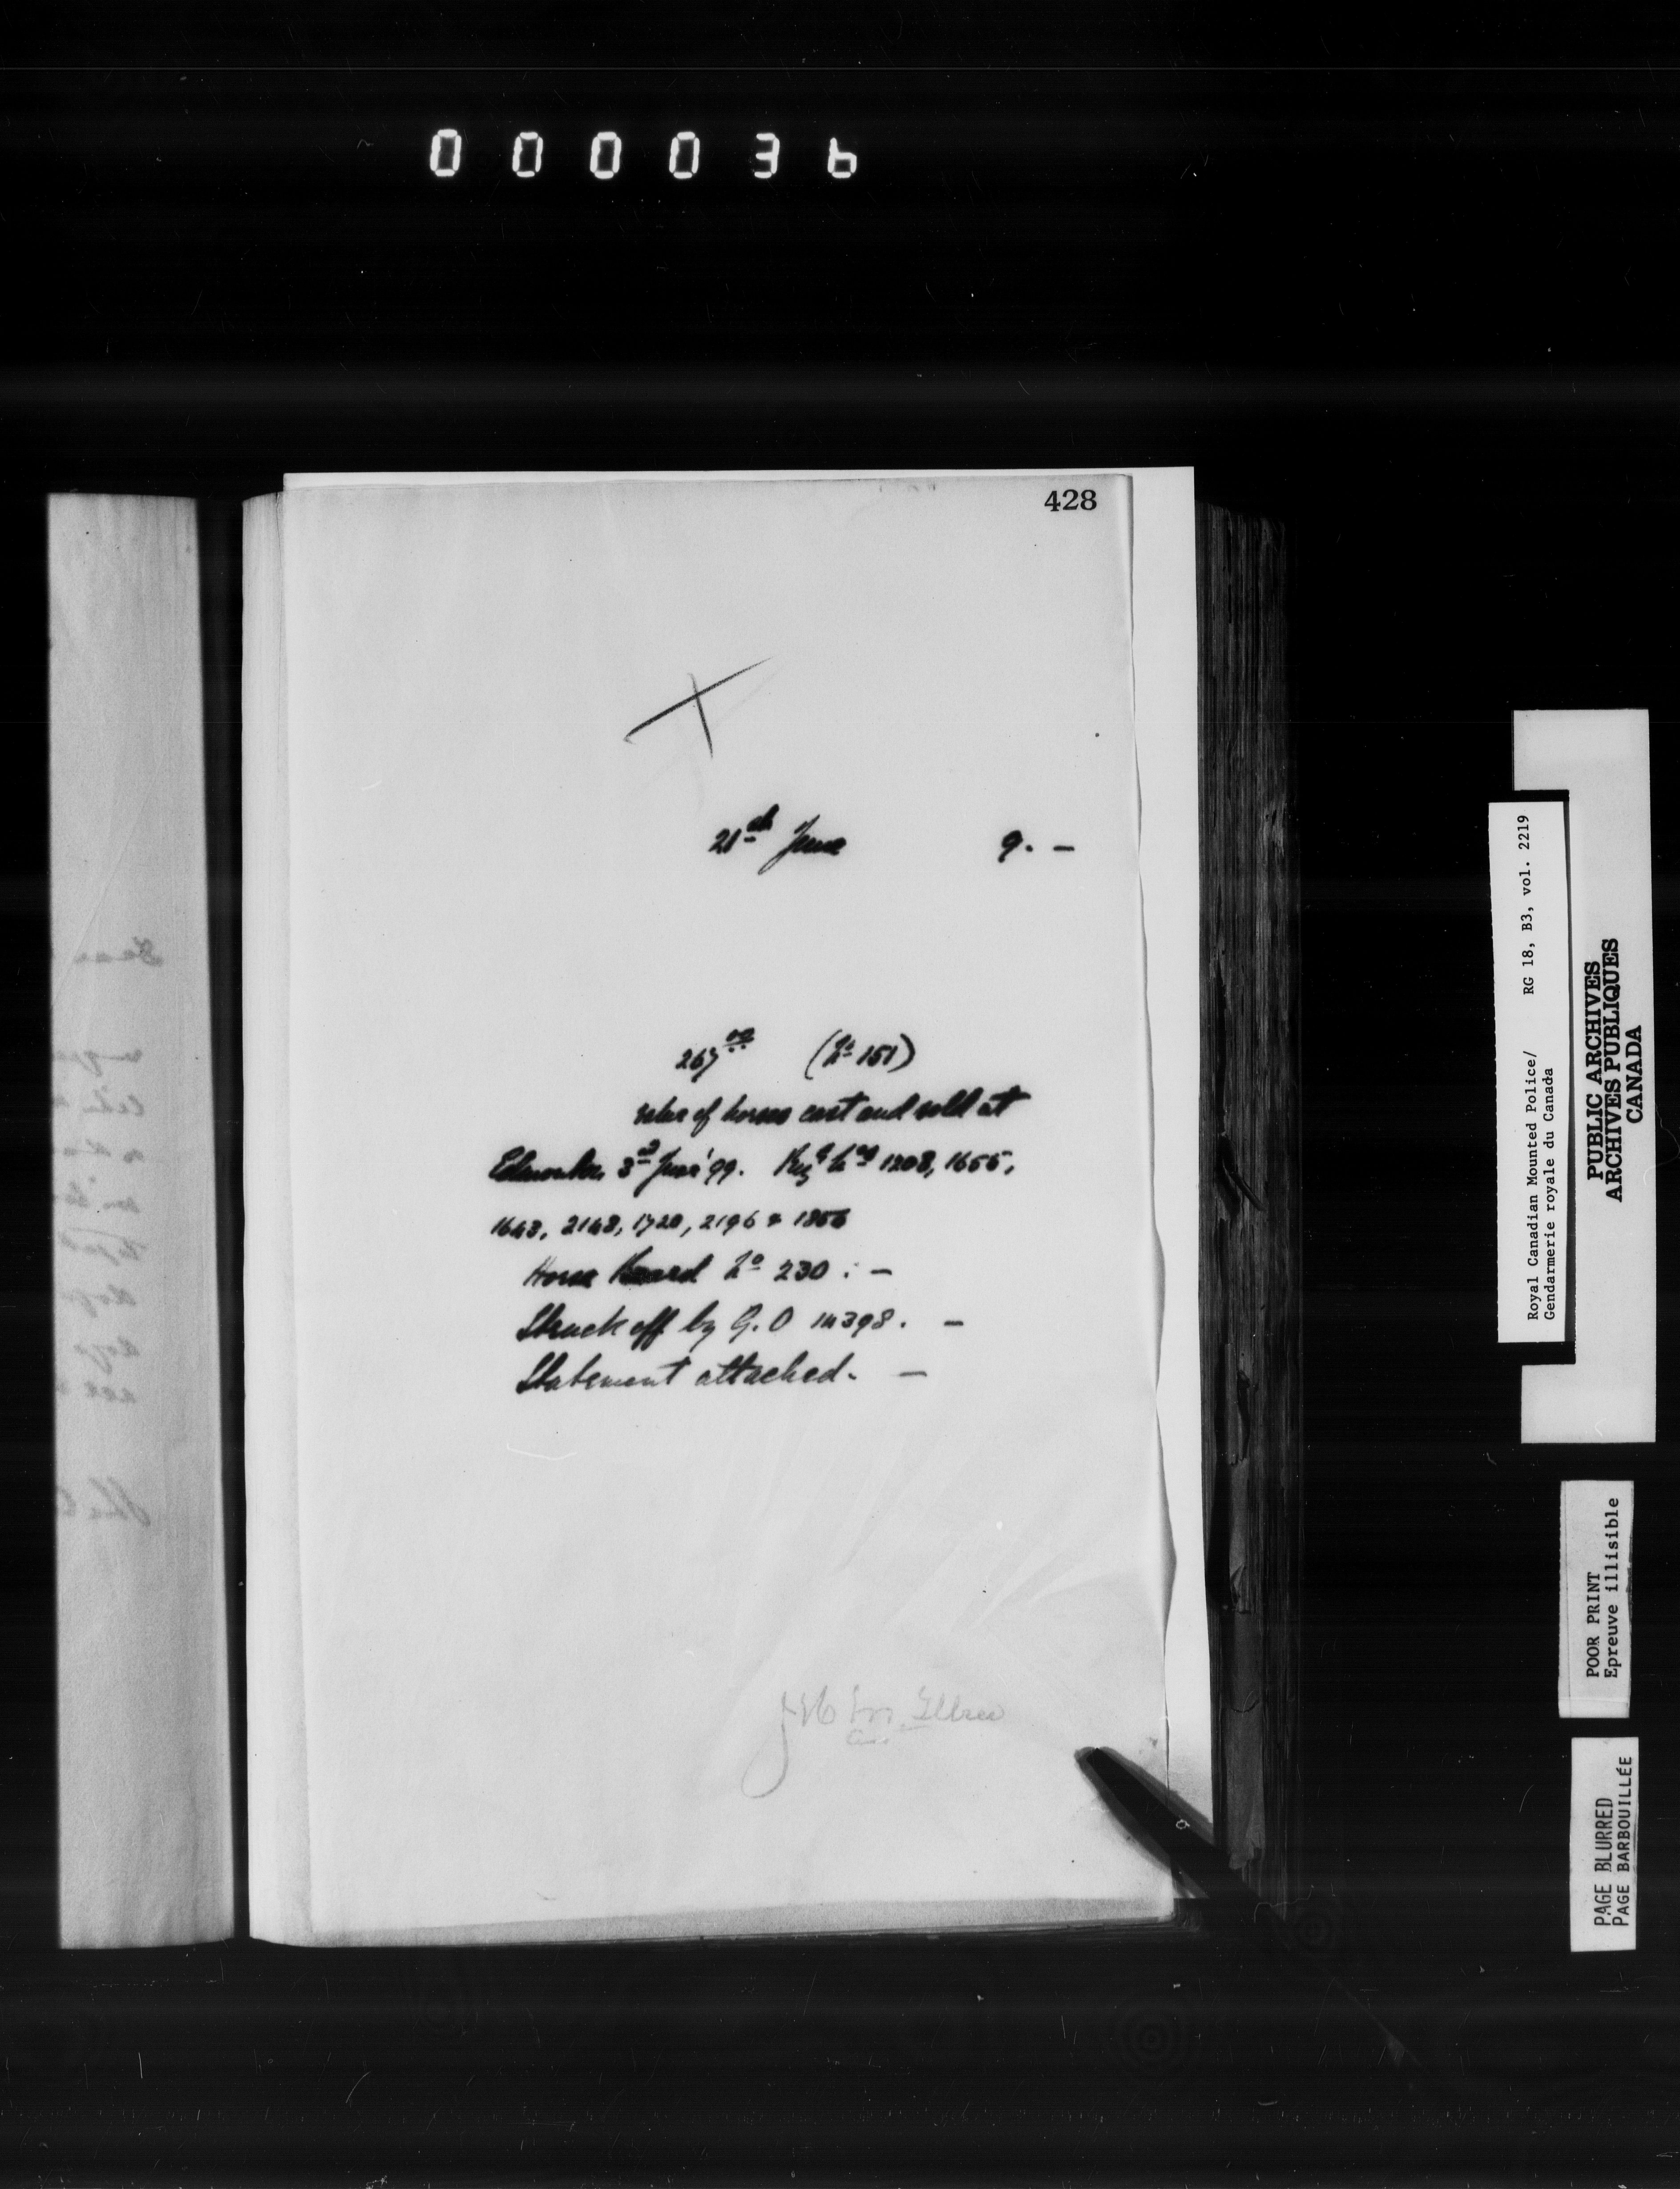 000036
428
21st June 9. –
267.00 (No 151)
value of horses cast and sold at
Edmonton 3rd June '99. Reg. Nos 1208, 1655,
1643, 2148, 1720, 2196 & 1856
Horse Record No 230 : –
Struck off by G. O 14398. –
Statement attached. –
Royal Canadian Mounted Police/ RG 18, B3, vol. 2219
Gendarmerie royale du Canada
PUBLIC ARCHIVES
ARCHIVES PUBLIQUES
CANADA
POOR PRINT
Epreuve illisible
PAGE BLURRED
PAGE BARBOUILLÉE